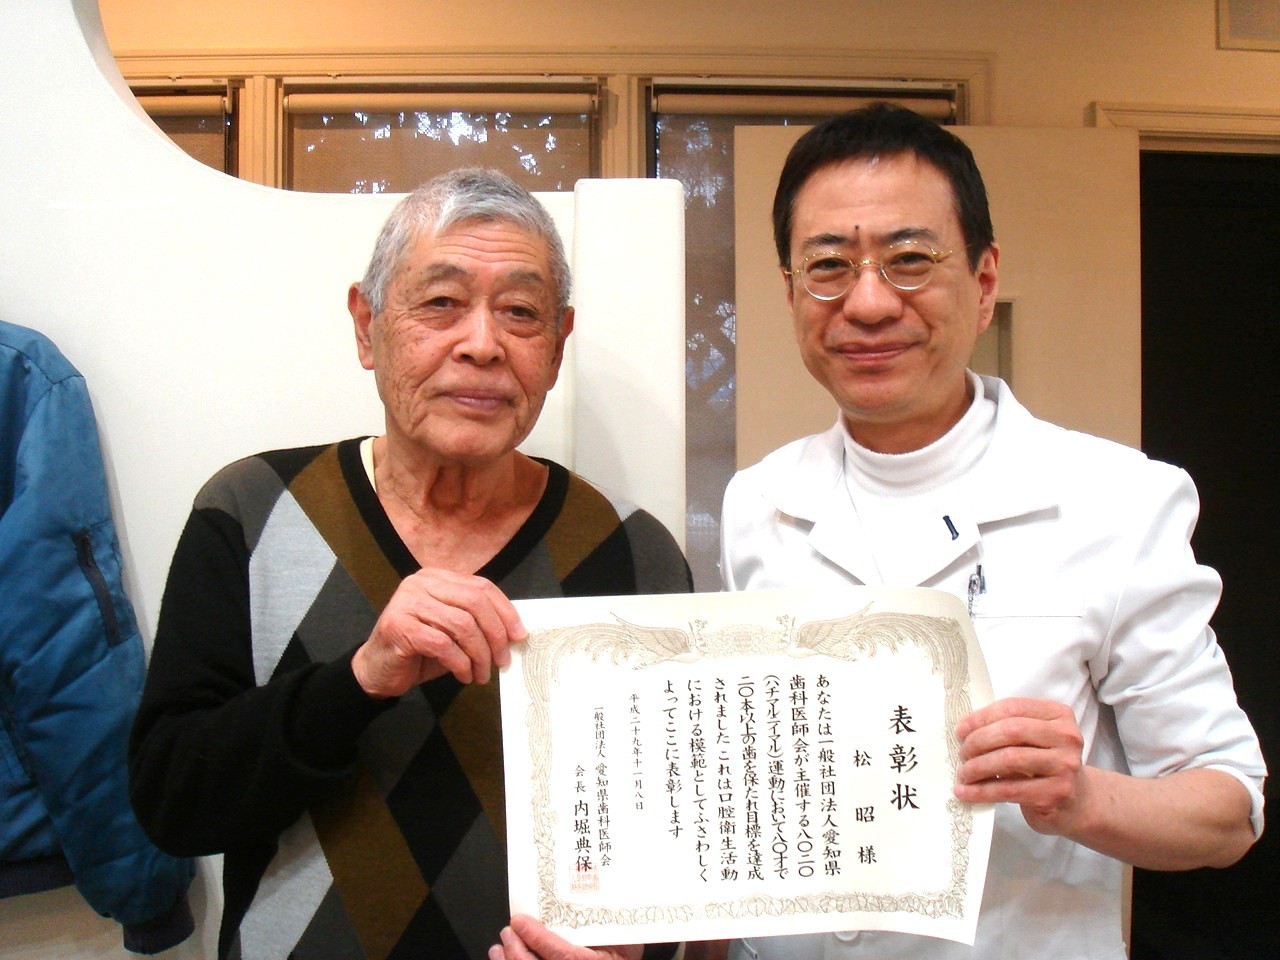 表彰状
松 昭 様
あなたは一般社団法人愛知県
歯科医師会が主催する八〇二〇
(ハチマルニイマル)運動において八〇才で
二〇本以上の歯を保たれ目標を達成
されました これは口腔衛生活動
における模範としてふさわしく
よってここに表彰します
平成二十九年十一月八日
一般社団法人 愛知県歯科医師会
会長 内堀典保